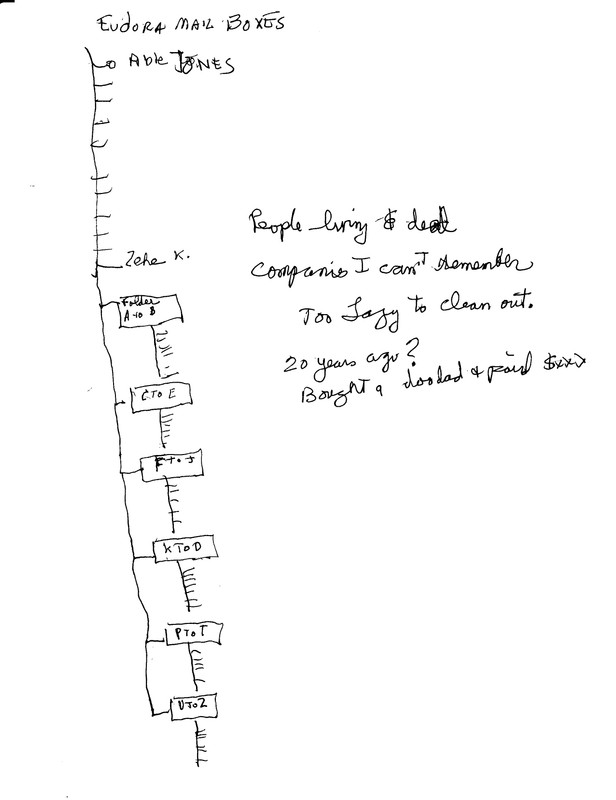 EUDORA MAIL BOXES
Able JONES
Zeke K.
Folder
A to B
C TO E
F to J
K TO O
P TO T
U TO Z
People living & dead
Companies I can't remember
Too Lazy to clean out.
20 years ago?
Bought a doodad & paid $xxx